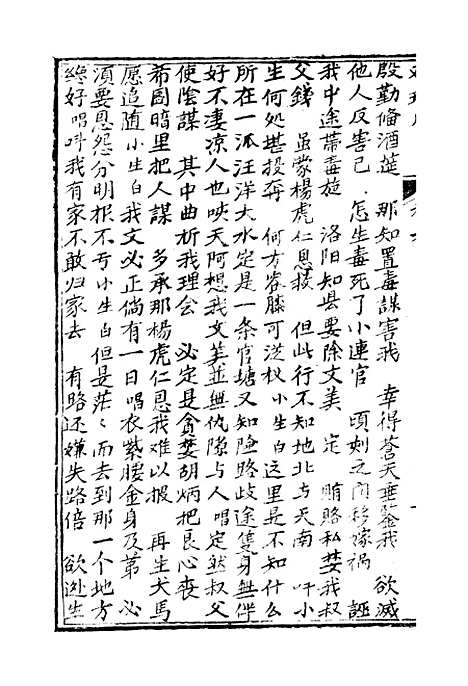 殷勤俻酒筵　那知置毒謀害我　幸得蒼天垂鉴我　欲滅
他人反害己　怎生毒死了小連官　頃刻之间移嫁祸　誣
我中途带毒施　洛阳知县要除文美　定　賄賂私婪我叔
父錢　虽蒙楊虎仁恩救　但此行不知地北与天南　吓小
生何処堪投奔　何方容膝可从权　小生白这里是不知什么
所在一派汪洋大水定是一条官塘又知险路歧途隻身無伴
好不凄凉人也唉天阿想我文美並無仇隙与人　唱定然叔父
使陰謀　其中曲折我理会　必定是貪婪胡炳把良心丧
希圖暗里把人謀　多承那楊虎仁恩我难以报　再生犬馬
愿追随小生白我文必正倘有一日唱衣紫腰金身乃第　必
須要恩怨分明报不亏小生白但是茫〻而去到那一个地方
终好唱吓我有家不敢归家去　有路还嫌失路倍　欲迯生